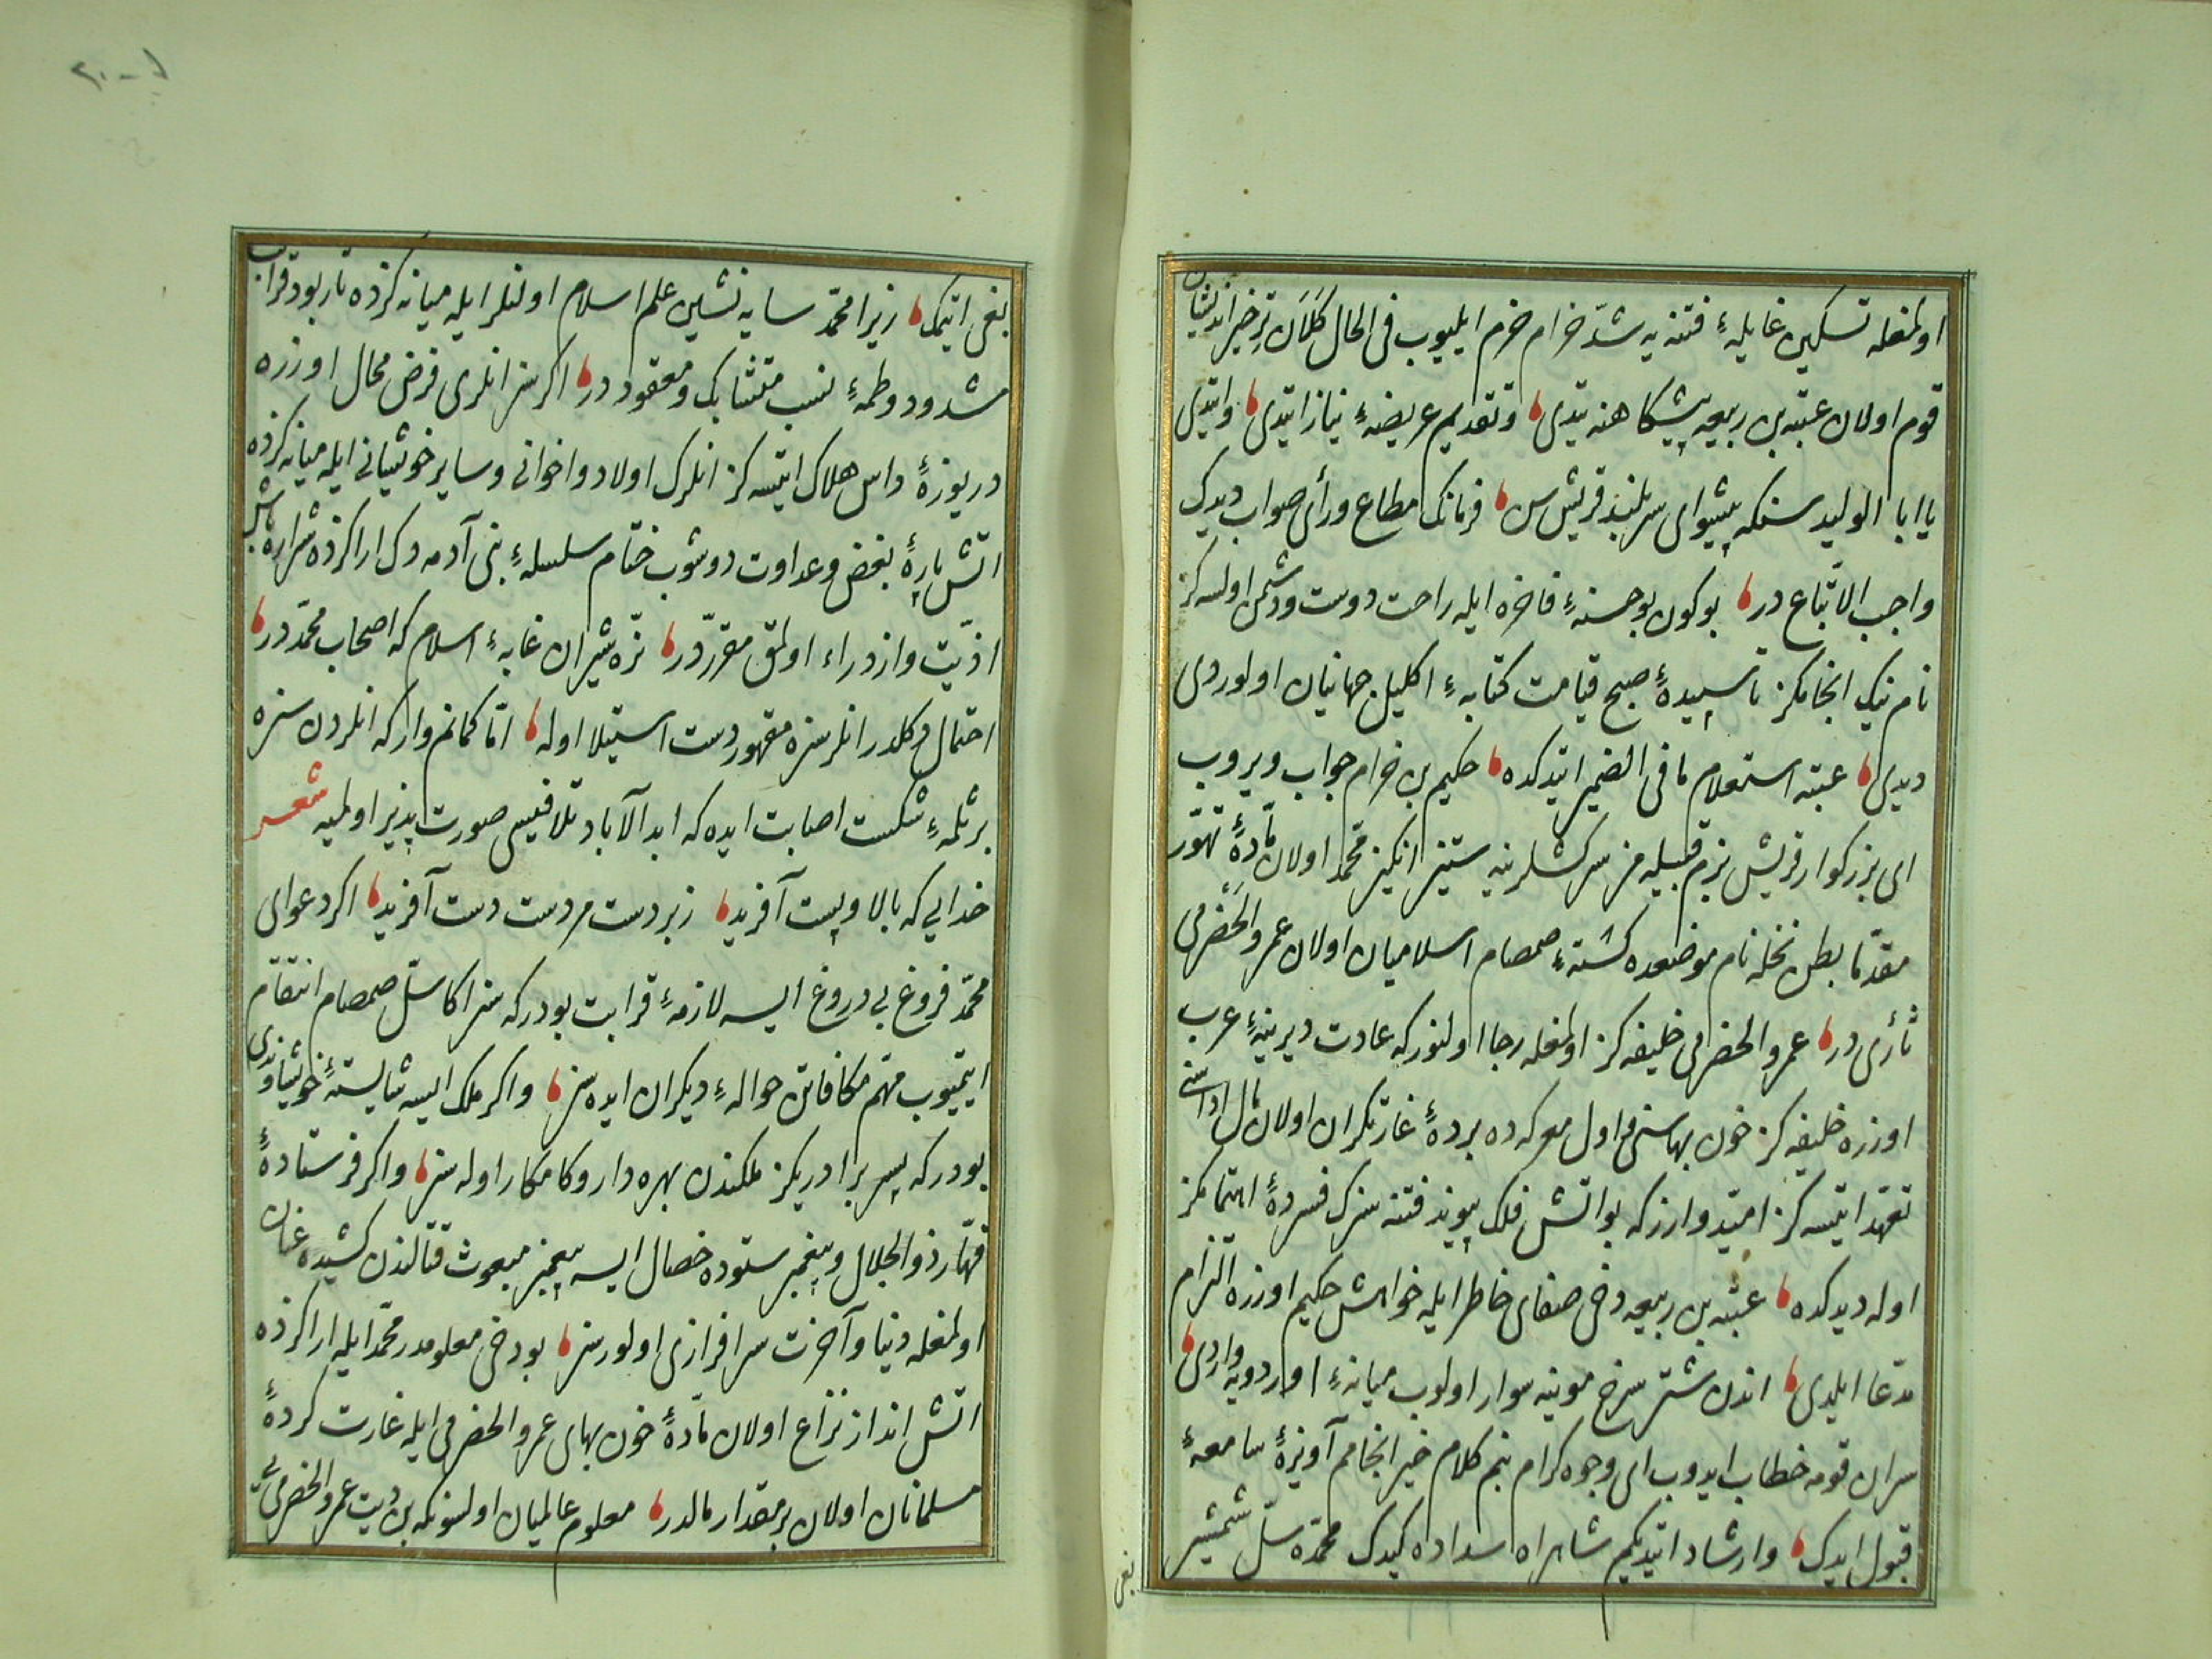 اولمغله تسكين غايلهٔ فتنه يه شدّ حزام حزم ايليوب فى الحال كلان تر خير انديشان
قوم اولان عتبه بن ربيعه پيشكاهنه يتدى و تقديم عريضهٔ نياز ايتدى وايتدى
يا ابا الوليد سنكه پيشواى سربلند قريش سن فرمانك مطاع ورأى صواب ديدك
واجب الاتّباع در بوكون بو حسنهٔ فاخره ايله راحت دوست ودشمن اولسه كز
نام نيك انجامكز تا سپيدهٔ صبح قيامت كتابهٔ اكليل جهانيان اولوردى
ديدى عتبه استعلام ما فى الضمير ايتدكده حكيم بن حزام جواب ويروب
اى بزركوار قريش بزم قبيله مز سركشلرينه ستيز انكيز محمّد اولان مادّهٔ تهوّر
مقدّما بطن نخله نام موضعده كشتهٔ صمصام اسلاميان اولان عمرو الحضرمى
ثأرى در عمرو الحضرمى خليفه كز اولمغله رجا اولنور كه عادت ديرينهٔ عرب
اوزره خليفه كز خون بهاسنى و اول معركه ده بردهٔ غارتكران اولان مال اداسنى
تعهّد ايتسه كز اميّد وارز كه بو اتش فلك پيوند فتنه سزك فسردهٔ اهتمامكز
اوله ديدكده عتبه بن ربيعه دخى صفاى خاطر ايله خواهش حكيم اوزره التزام
مدّعا ايلدى اندن شتر سرخ موينه سوار اولوب ميانهٔ اوردويه واردى
سران قومه خطاب ايدوب اى وجوه كرام بنم كلام خير انجامم آويزهٔ سامعهٔ
قبول ايدك وارشاد ايتديكم شاهراه سداده كيدك محمّده سلّ شمشير
بغى
بغى ايتمك زيرا محمّد سايه نشين علم اسلام اولنلر ايله ميانه كزده تار پود قرابت
مشدود و طمهٔ نسب متشابك و معقود در اكر سز انلرى فرض محال اوزره
دريوزهٔ داس هلاك ايتسه كز انلرك اولاد واخوانى وساير خويشانى ايله ميانه كزده
اتش پارهٔ بغض وعداوت دوشوب ختام سلسلهٔ بنى آدمه دك اراكزده شراره پاش
اذيّت وازدراء اولمق مقرّردر نرّه شيران غابهٔ اسلام كه اصحاب محمّد در
احتمال دكلدر انلر سزه مقهور دست استيلا اوله امّا كمانم وار كه انلردن سزه
بر ثلمهٔ شكست اصابت ايده كه ابد الآباد تلافيسى صورت پذير اولميه شعر
خدايى كه بالا و پست آفريد زبر دست هر دست دست آفريد اكر دعواى
محمّد فروغ بى دروغ ايسه لازمهٔ قرابت بودر كه سز اكا سلّ صمصام انتقام
ايتميوب مهمّ مكافاتن حوالهٔ ديكران ايده سز واكر ملك ايسه شايستهٔ خويشاوندى
بودر كه پسر برادريكز ملكندن بهره دار وكامكار اوله سز واكر فرستادهٔ
قهّار ذو الجلال و پيغمبر ستوده خصال ايسه پيغمبر مبعوث قتالندن كشيده عنان
اولمغله دنيا وآخرت سرافرازى اولورسز بو دخى معلومدر محمّد ايله اراكزده
اتش انداز نزاع اولان مادّهٔ خون بهاى عمرو الحضرمى ايله غارت كردهٔ
مسلمانان اولان بر مقدار مالدر معلوم عالميان اولسونكه بن ديت عمرو الحضرمى يى